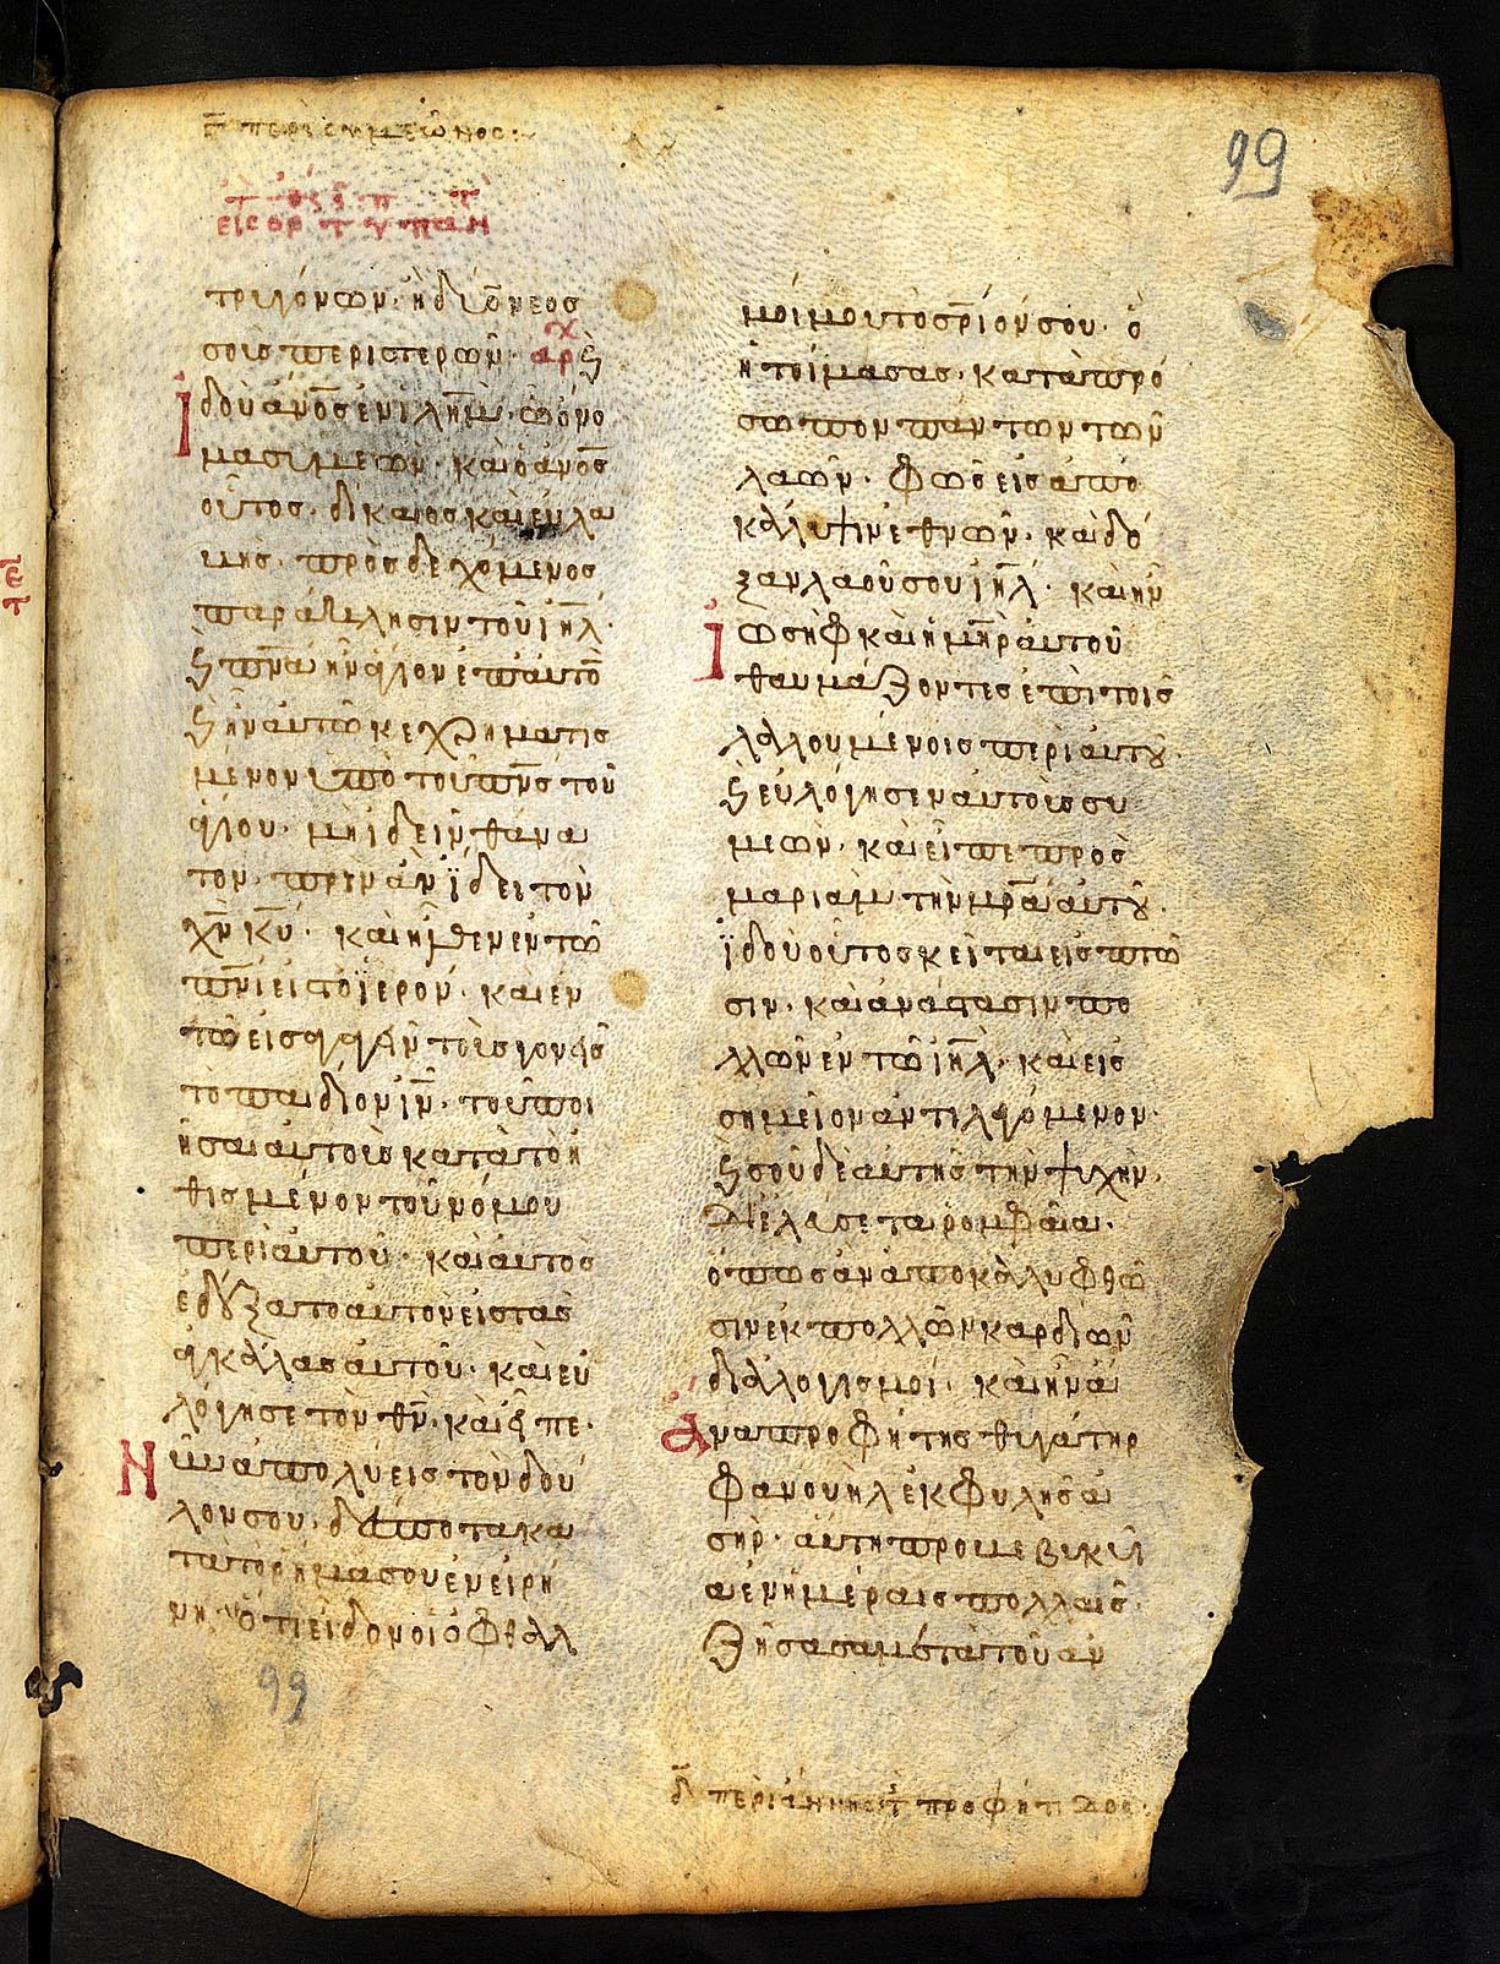 γ̅ περι συμεῶνος:
99
τρυγόνων· ἢ δύο νεοσ
σοὺς περιστερῶν· ἀρχ ϛ
ἰδοὺ ἀνο̅ς ἐν ιλη̅μ· ᾧ ὄνο
μα συμεὼν· καὶ ὁ ἀνο̅ς
οὗτος· δίκαιος καὶ εὐλα
βὴς· πρὸσδεχόμενος
παράκλησιν τοῦ ιη̅λ·
ϛ πν̅α ἦν ἅγιον ἐπ' αὐτὸ̅
ϛ ἦν αὐτῶ κεχρηματισ
μένον ὑπὸ τοῦ πν̅ς τοῦ
ἁγίου· μὴ ἰδεῖν θάνα
τον· πρὶν ἂν ἴδει τὸν
χν̅ κυ̅· καὶ ἦλθεν ἐν τῶ
πν̅ι εἰς τὸ ἱερόν· καὶ ἐν
τῶ εἰσαγαγεῖν τοὺς γονεῖς
τὸ παιδίον ιν̅· τοῦ ποι
ῆσαι αὐτοὺς κατὰ τὸ εἰ
θισμένον τοῦ νόμου
περὶ αὐτοῦ· καὶ αὐτὸς
ἐδέξατο αὐτὸν εἰς τὰς
ἀγκάλας αὐτοῦ· καὶ εὐ
λόγησε τὸν θν̅· καὶ εἶπε·
Νῦν ἀπολύεις τὸν δοῦ
λον σου· δέσποτα κα
τὰ τὸ ρῆμα σου ἐν εἰρή
νη· ὅτι εἶδον οἱ ὀφθαλ
99
μοί μου τὸ σρ̅ιόν σου· ὃ
ἡτοίμασας· κατὰ πρό
σωπον πάντων τῶν
λαῶν· φῶς εἰς ἀπο
κάλυψιν ἐθνῶν· καὶ δό
ξαν λαοῦ σου ιη̅λ· καὶ ἦν
ἰωσὴφ καὶ ἡ μη̅ρ αὐτοῦ
θαυμάζοντες ἐπὶ τοῖς
λαλουμένοις περὶ αὐτοῦ·
ϛ εὐλόγησεν αὐτοὺς συ
μεὼν· καὶ εἶπε πρὸς
μαριὰμ τὴν μρ̅α αὐτοῦ·
ἰδοὺ οὗτος κεῖται εἰς πτῶ
σιν· καὶ ἀνάστασιν πο
λλῶν ἐν τῶ ιη̅λ· καὶ εἰς
σημεῖον ἀντιλεγόμενον·
ϛ σοῦ δὲ αὐτῆς τὴν ψυχὴν·
διελεύσεται ρομφαία·
ὅπως ἂν ἀποκαλυφθῶ
σιν ἐκ πολλῶν καρδιῶν
διαλογισμοί· καὶ ἦν ἄ
Ἄννα προφῆτης θυγάτηρ
φανουὴλ ἐκ φυλῆς ἀ
σὴρ· αὕτη προβεβηκυῖ
α ἐν ἡμέραις πολλαῖς·
ζήσασα μετὰ τοῦ ἀν
δ̅ περὶ ἄννης τ προφήτιδος·